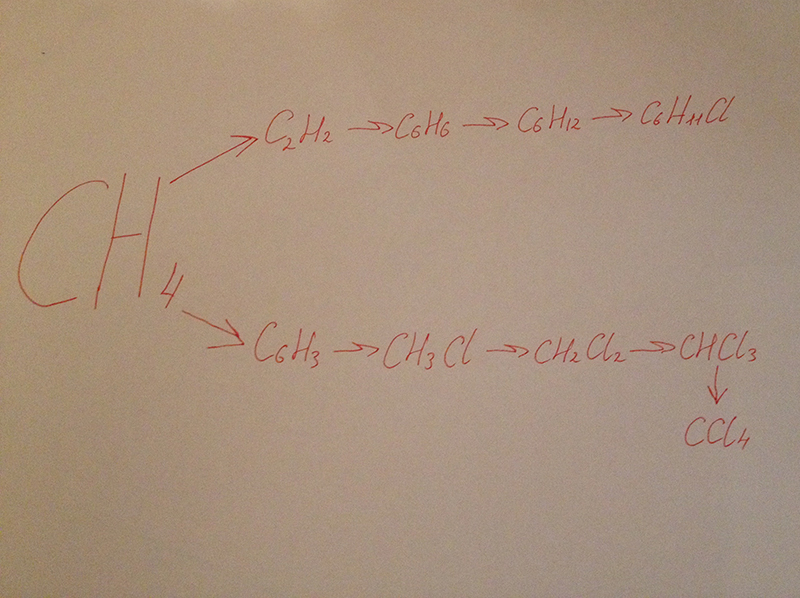 C₂H₂ → C₆H₆ → C₆H₁₂ → C₆H₁₁Cl
CH₄
C₆H₃ → CH₃Cl → CH₂Cl₂ → CHCl₃
CCl₄